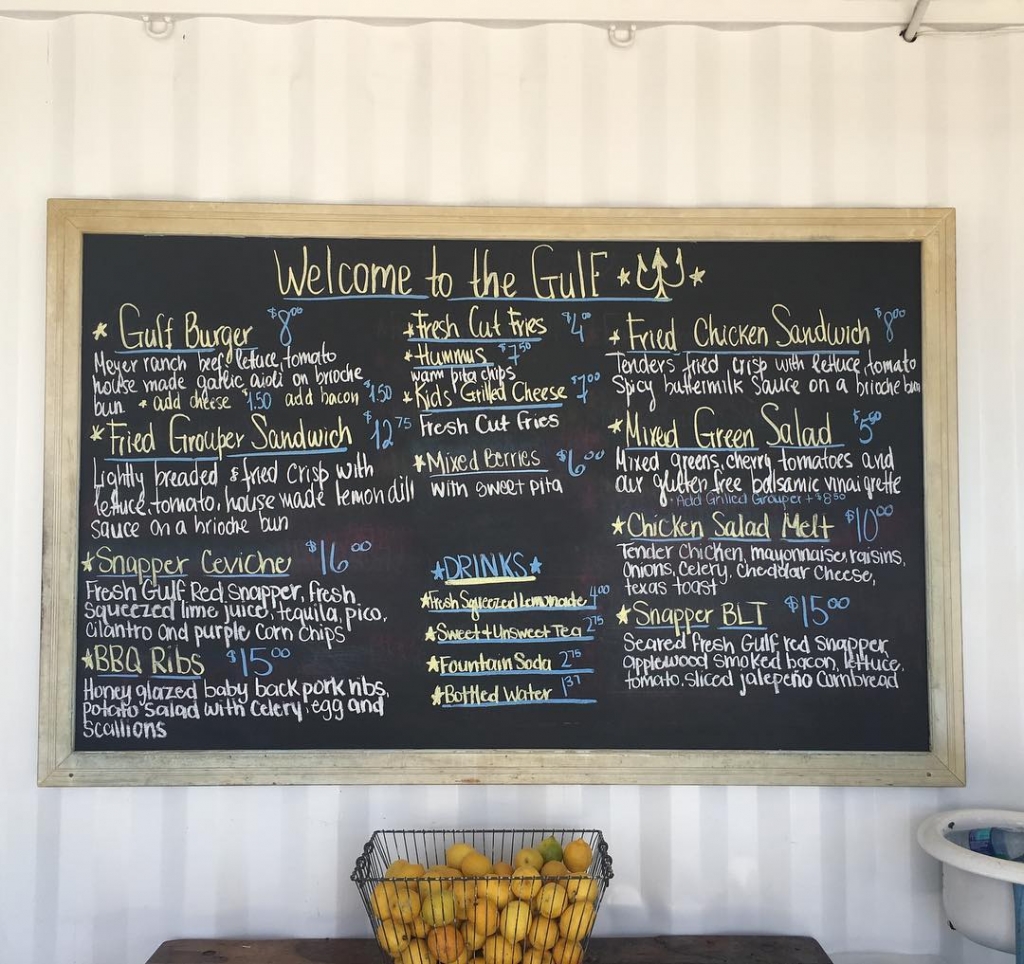 Welcome to the Gulf
Gulf Burger $8.00
Meyer ranch beef, lettuce, tomato
house made garlic aioli on brioche
bun. * add cheese $1.50 add bacon $1.50
Fried Grouper Sandwich $12.75
Lightly breaded & fried crisp with
lettuce, tomato, house made lemon dill
sauce on a brioche bun
Snapper Ceviche $16.00
Fresh Gulf Red Snapper, Fresh
squeezed lime juice, tequila, pico,
cilantro and purple corn chips
BBQ Ribs $15.00
Honey glazed baby back pork ribs,
potato salad with celery, egg and
scallions
Fresh Cut Fries $4.00
Hummus $7.50
warm pita chips
Kid's Grilled Cheese $7.00
Fresh Cut Fries
Mixed Berries $6.00
with sweet pita
DRINKS
Fresh Squeezed Lemonade 4.00
Sweet + Unsweet Tea 2.75
Fountain Soda 2.75
Bottled Water
Fried Chicken Sandwich $8.00
Tenders fried crisp with lettuce, tomato
Spicy buttermilk sauce on a brioche bun
Mixed Green Salad $5.00
Mixed greens, cherry tomatoes and
our gluten free balsamic vinaigrette
• Add Grilled Grouper + $8.50
Chicken Salad Melt $10.00
Tender chicken, mayonnaise, raisins,
onions, celery, cheddar cheese,
texas toast
Snapper BLT $15.00
Seared Fresh Gulf red snapper
applewood smoked bacon, lettuce,
tomato, sliced jalapeño cornbread